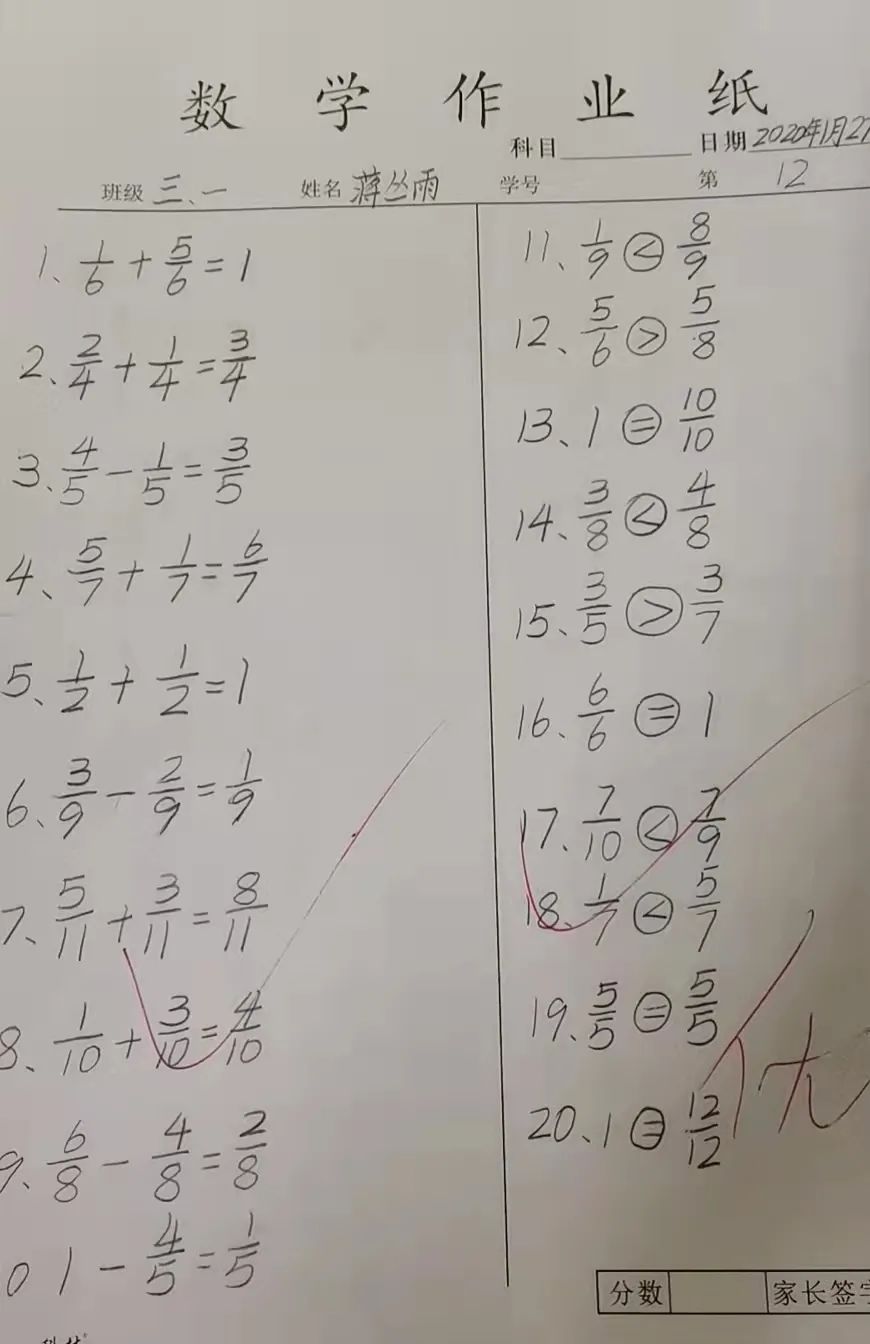 数学作业纸
科目 日期 2020年1月27
班级 三、一 姓名 蒋丛雨 学号 第 12
1、1/6 + 5/6 = 1
2、2/4 + 1/4 = 3/4
3、4/5 - 1/5 = 3/5
4、5/7 + 1/7 = 6/7
5、1/2 + 1/2 = 1
6、3/9 - 2/9 = 1/9
7、5/11 + 3/11 = 8/11
8、1/10 + 3/10 = 4/10
9、6/8 - 4/8 = 2/8
0 1 - 4/5 = 1/5
11、1/9 < 8/9
12、5/6 > 5/8
13、1 = 10/10
14、3/8 < 4/8
15、3/5 > 3/7
16、6/6 = 1
17、7/10 < 7/9
18、1/7 < 5/7
19、5/5 = 5/5
20、1 = 12/12
优
分数 家长签字